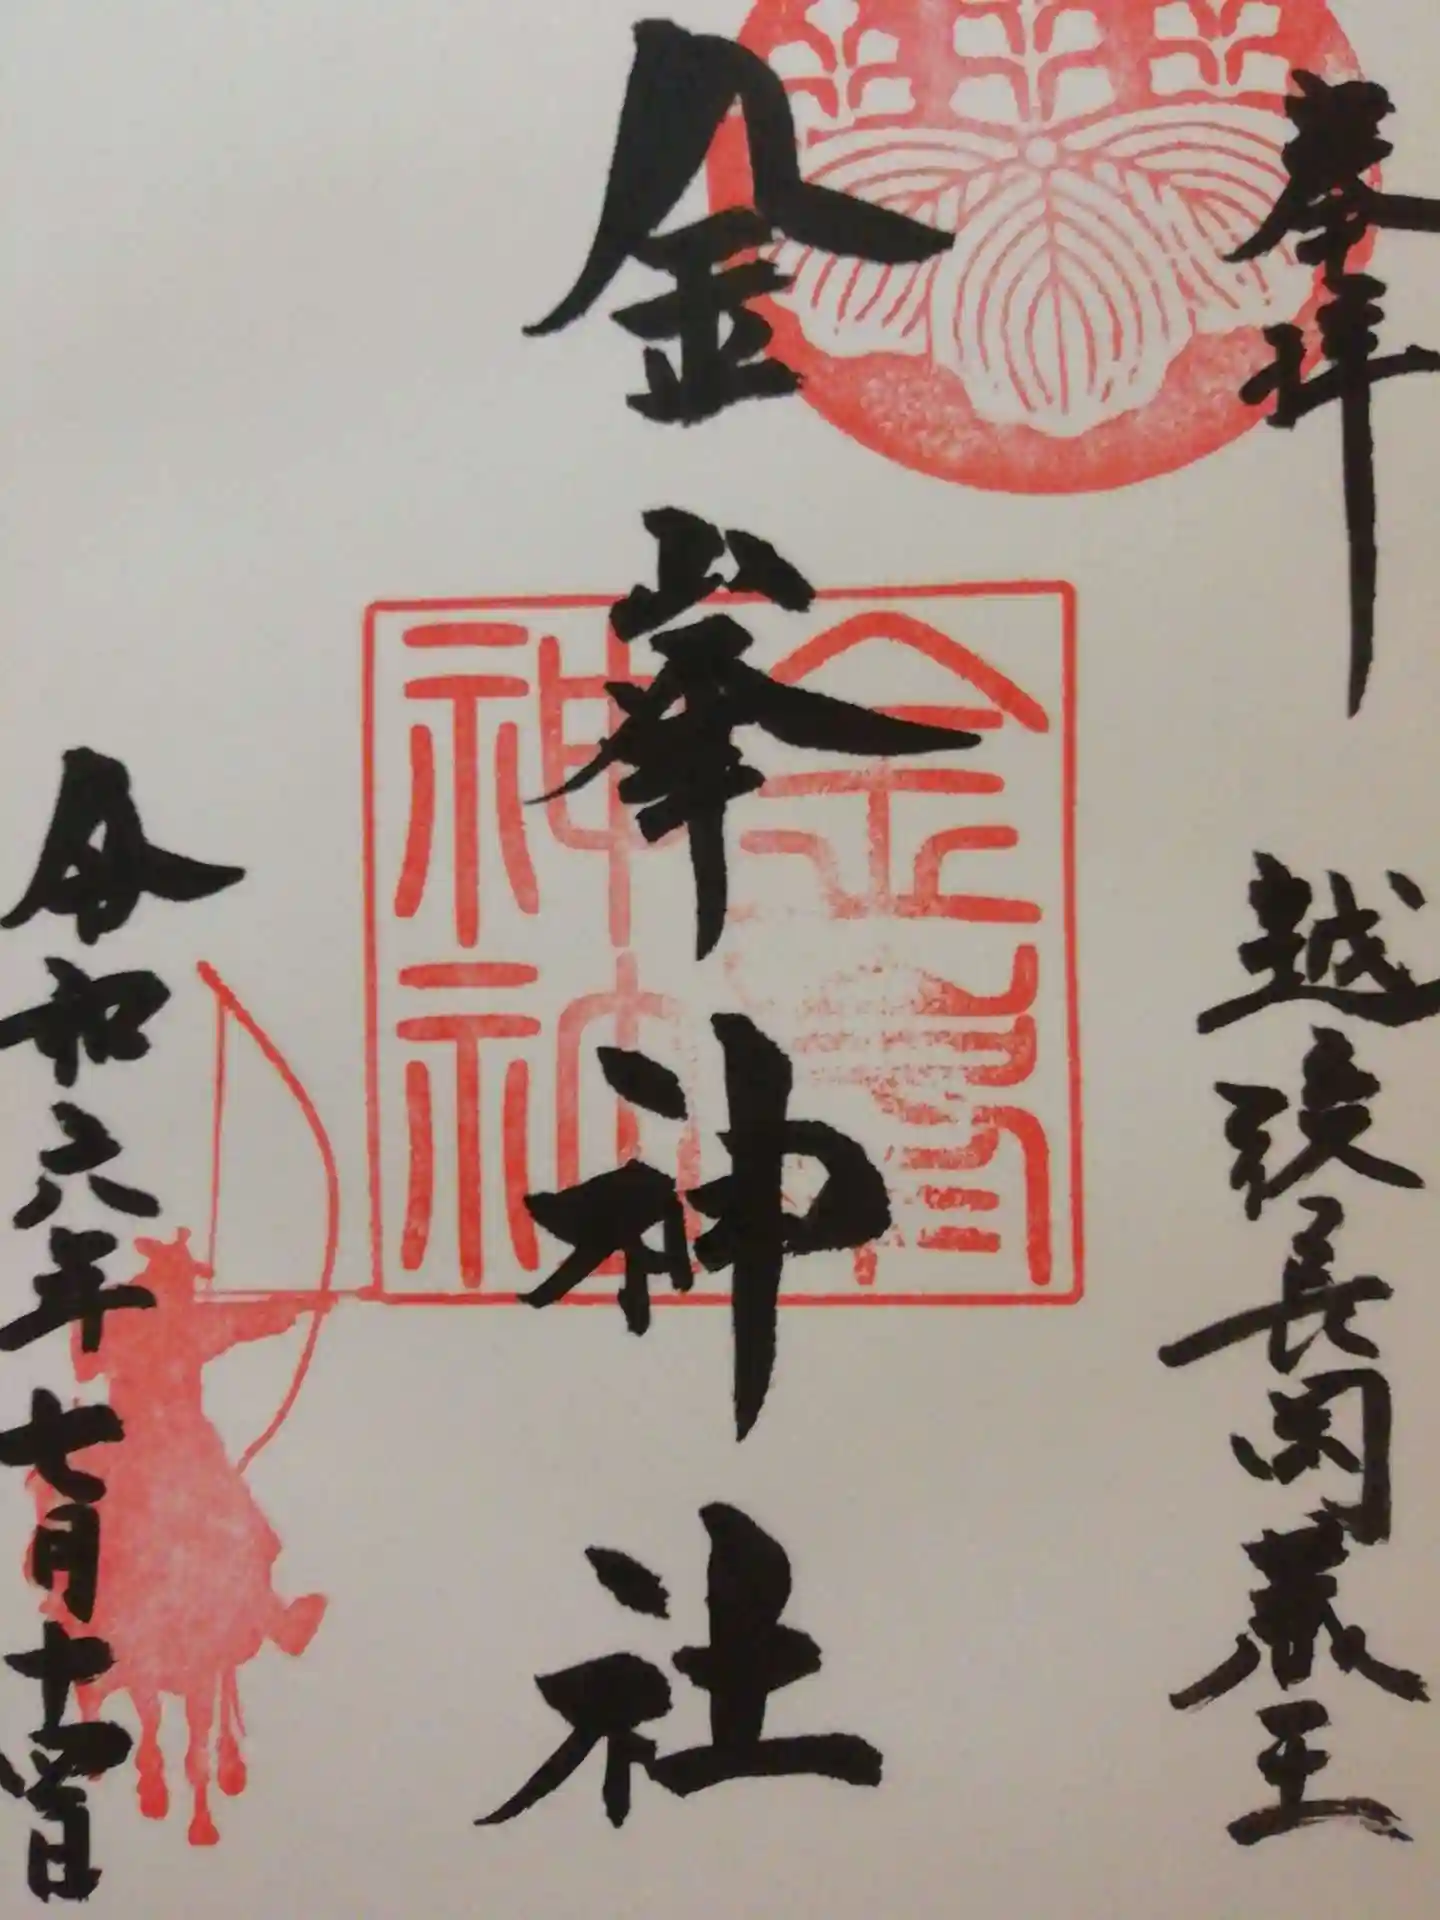 奉拝 越後長岡蔵王
金峯神社
令和六年七月十四日